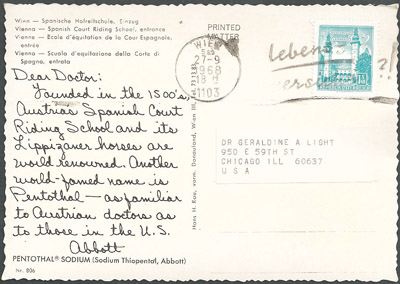 Wien — Spanische Hofreitschule, Einzug
Vienna — Spanish Court Riding School, entrance
Vienne — Ecole d'équitation de la Cour Espagnole,
entrée
Vienna — Scuola d'equitazione della Corte di
Spagna, entrata
PRINTED
MATTER
WIEN
27-9
1968
18
1103
lebens
?!
Dear Doctor:
Founded in the 1500's,
Austria's Spanish Court
Riding School and its
Lippizaner horses are
world renowned. Another
world-famed name is
Pentothal — as familiar
to Austrian doctors as
to those in the U.S.
Abbott
DR GERALDINE A LIGHT
950 E 59TH ST
CHICAGO ILL 60637
U S A
PENTOTHAL® SODIUM (Sodium Thiopental, Abbott)
Nr. 806